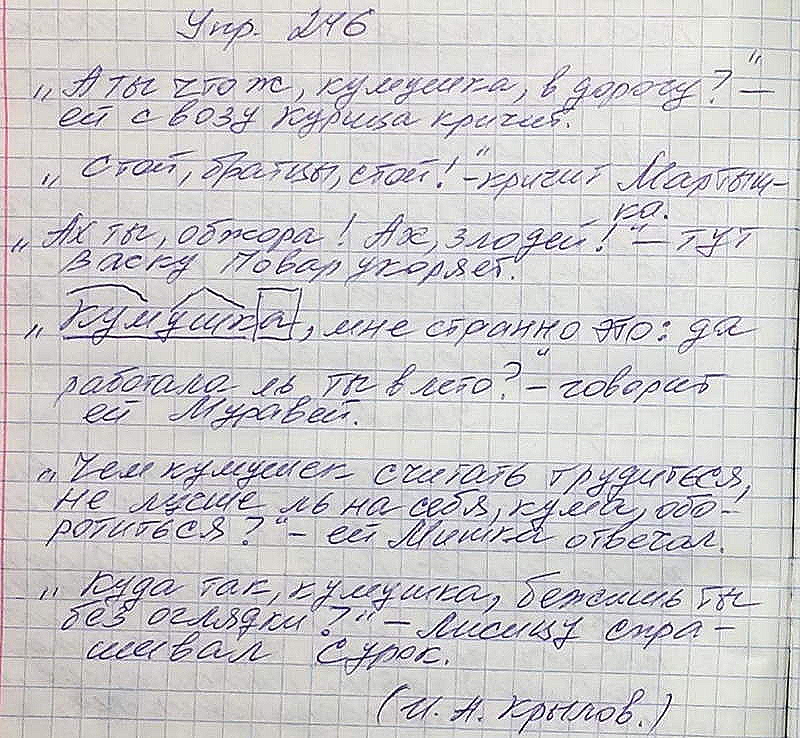 Упр. 246
„А ты что ж, кумушка, в дорогу?" –
ей с возу Курица кричит.
„Стой, братцы, стой!" – кричит Мартыш-
ка.
„Ах ты, обжора! Ах, злодей!" – тут
Ваську Повар укоряет.
„Кумушка, мне странно это: да
работала ль ты в лето?" – говорит
ей Муравей.
„Чем кумушек считать трудиться,
не лучше ль на себя, кума, обо-
ротиться?" – ей Мишка отвечал.
„Куда так, кумушка, бежишь ты
без оглядки?" – Лисицу спра-
шивал Сурок.
(И. А. Крылов.)